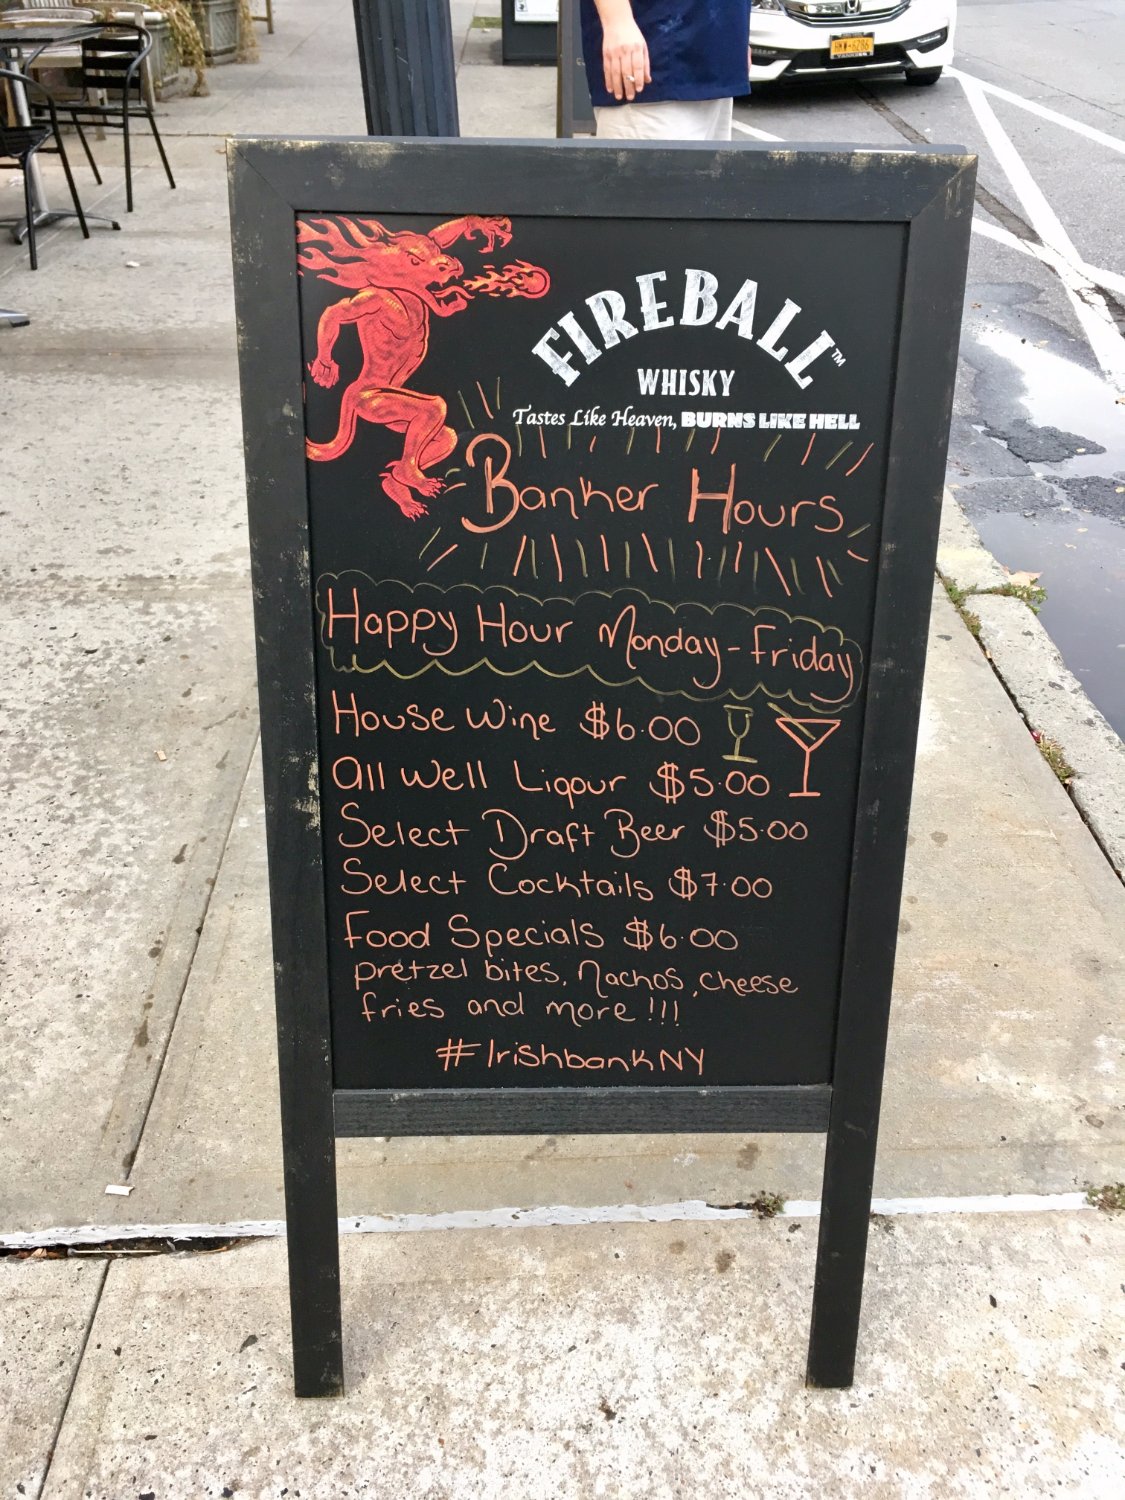 FIREBALL™
WHISKY
Tastes Like Heaven, BURNS LIKE HELL
Banker Hours
Happy Hour Monday - Friday
House Wine $6.00
All Well Liqour $5.00
Select Draft Beer $5.00
Select Cocktails $7.00
Food Specials $6.00
pretzel bites, Nachos, cheese
fries and more !!!
#IrishbankNY